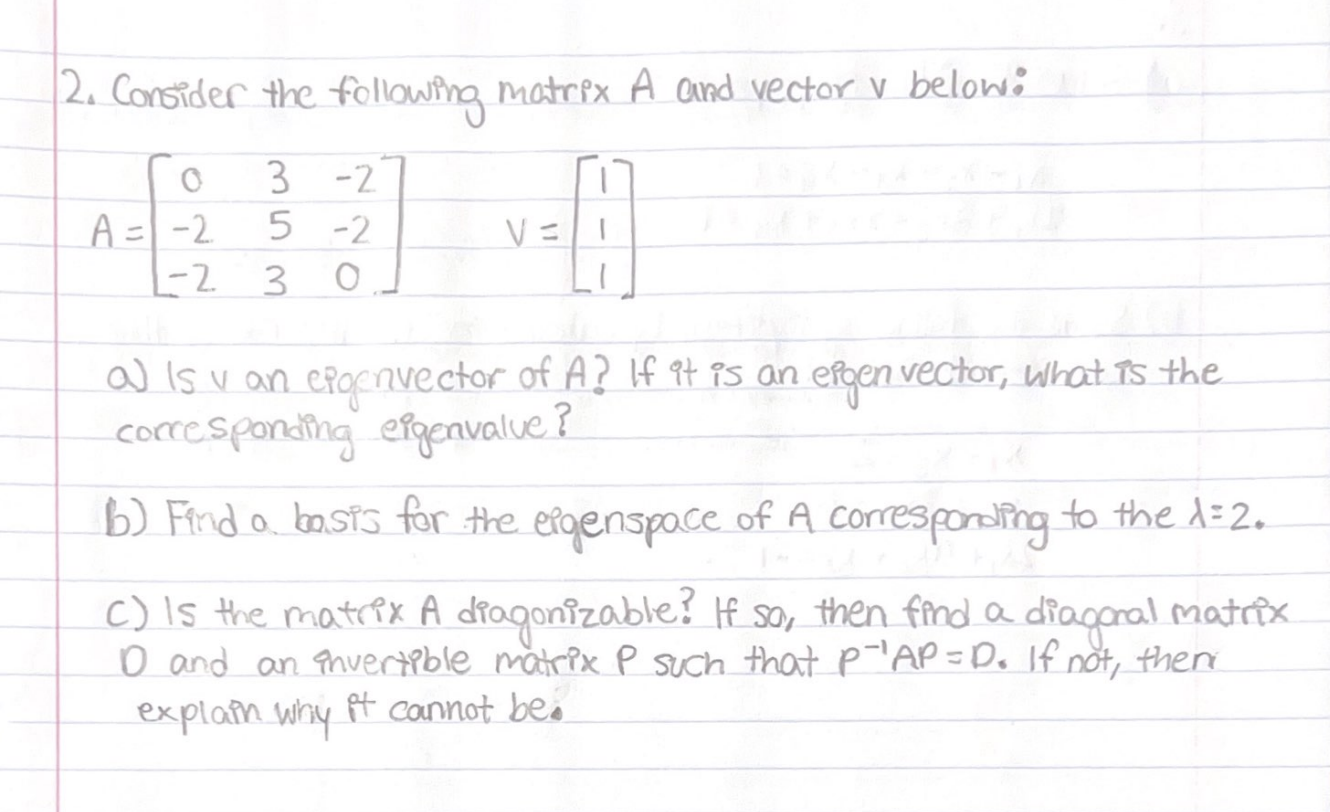 2. Consider the following matrix A and vector v below:
A = [0 3 -2
-2 5 -2
-2 3 0] v = [1
1
1]
a) Is v an eigenvector of A? If it is an eigenvector, what is the
corresponding eigenvalue?
b) Find a basis for the eigenspace of A corresponding to the λ=2.
c) Is the matrix A diagonizable? If so, then find a diagonal matrix
D and an invertible matrix P such that P⁻¹AP = D. If not, then
explain why it cannot be.